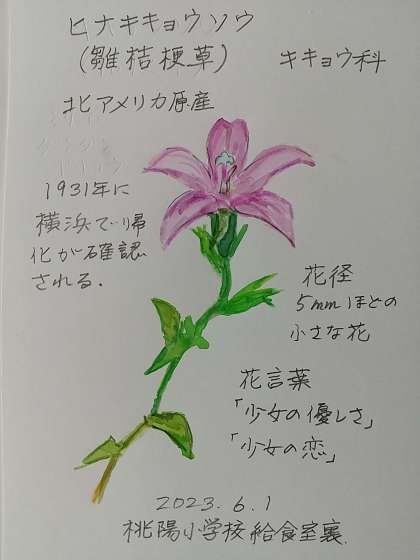 ヒナキキョウソウ
(雛桔梗草)
キキョウ科
北アメリカ原産
1931年に
横浜で帰
化が確認
される.
花径
5mmほどの
小さな花
花言葉
「少女の優しさ」
「少女の恋」
2023.6.1
桃陽小学校給食室裏.